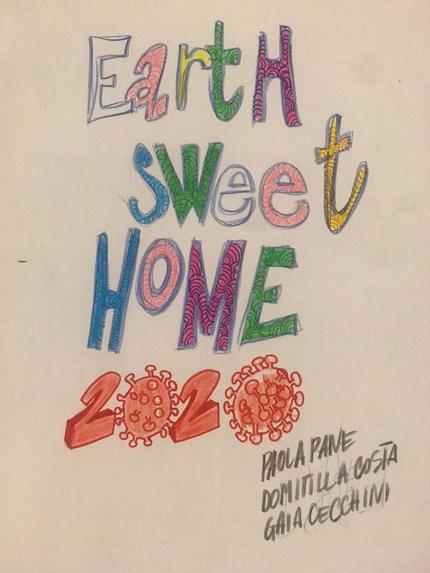 EartH
sweet
HOME
2020
PAOLA PANE
DOMITILLA COSTA
GAIA CECCHINI